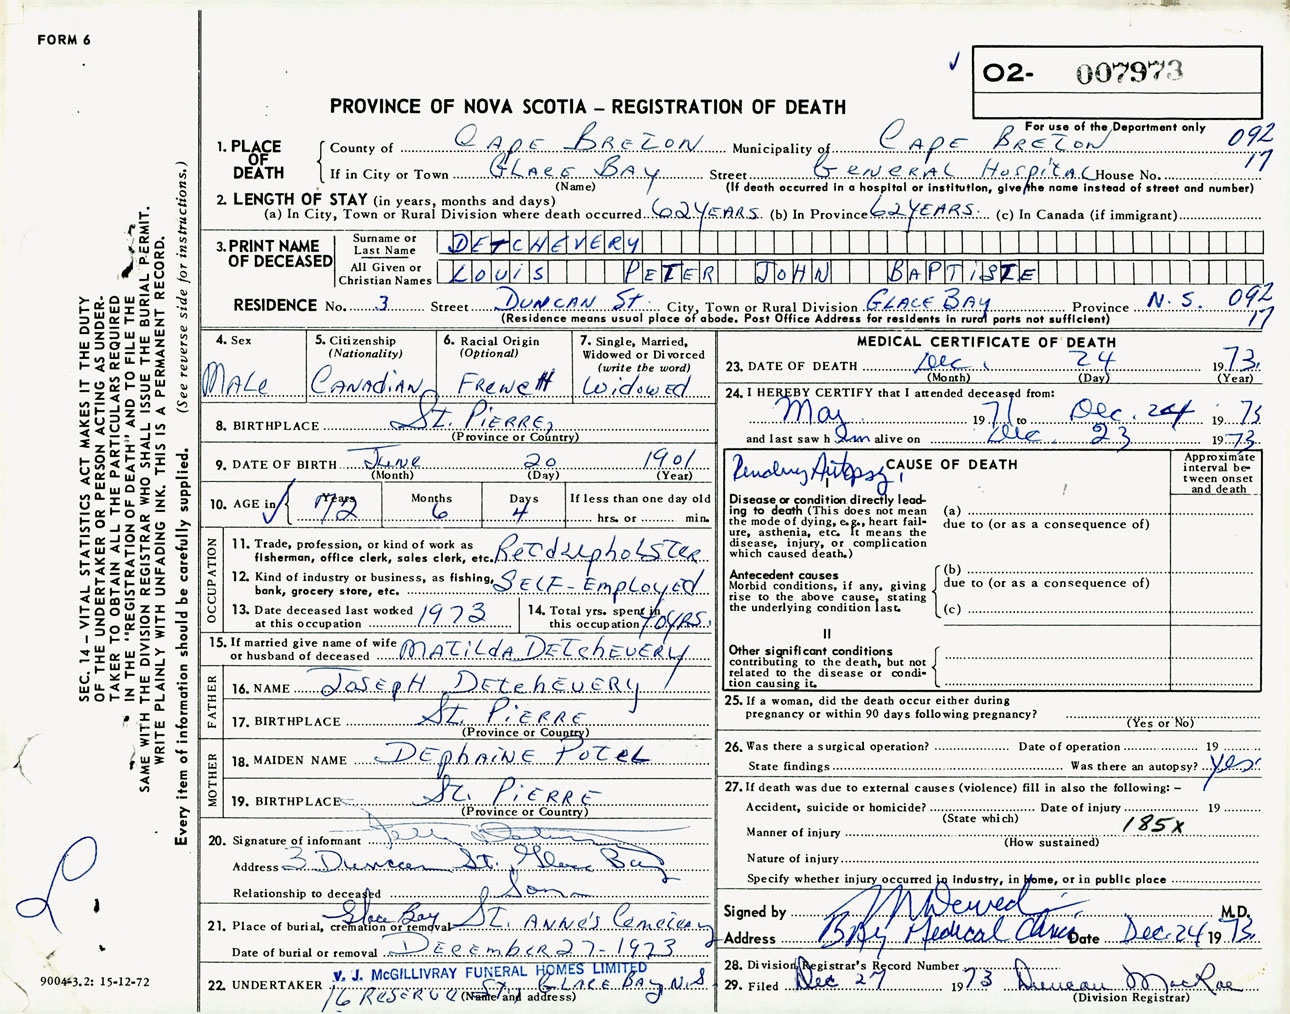 FORM 6
O2- 007973
PROVINCE OF NOVA SCOTIA – REGISTRATION OF DEATH
For use of the Department only
092
17
1. PLACE OF DEATH
County of CAPE BRETON Municipality of CAPE BRETON
If in City or Town GLACE BAY Street GENERAL HOSPITAL House No.
(Name) (If death occurred in a hospital or institution, give the name instead of street and number)
2. LENGTH OF STAY (in years, months and days)
(a) In City, Town or Rural Division where death occurred 62 YEARS (b) In Province 62 YEARS. (c) In Canada (if immigrant)
3. PRINT NAME OF DECEASED
Surname or Last Name DETCHEVERY
All Given or Christian Names LOUIS PETER JOHN BAPTISTE
RESIDENCE No. 3 Street DUNCAN ST. City, Town or Rural Division GLACE BAY Province N.S. 092
17
(Residence means usual place of abode. Post Office Address for residents in rural parts not sufficient)
4. Sex
MALE
5. Citizenship
(Nationality)
CANADIAN
6. Racial Origin
(Optional)
FRENCH
7. Single, Married,
Widowed or Divorced
(write the word)
WIDOWED
8. BIRTHPLACE ST. PIERRE,
(Province or Country)
9. DATE OF BIRTH JUNE 20 1901
(Month) (Day) (Year)
10. AGE in Years 72 Months 6 Days 4 If less than one day old
hrs. or min.
OCCUPATION
11. Trade, profession, or kind of work as
fisherman, office clerk, sales clerk, etc. Retd upholster
12. Kind of industry or business, as fishing,
bank, grocery store, etc. SELF-EMPLOYED
13. Date deceased last worked
at this occupation 1973
14. Total yrs. spent in
this occupation 40 YRS.
15. If married give name of wife
or husband of deceased MATILDA DETCHEVERY
FATHER
16. NAME JOSEPH DETCHEVERY
17. BIRTHPLACE ST. PIERRE
(Province or Country)
MOTHER
18. MAIDEN NAME DEPHAINE POTEL
19. BIRTHPLACE ST. PIERRE
(Province or Country)
20. Signature of informant
Address 3 Duncan St. Glace Bay
Relationship to deceased Son
Glace Bay
21. Place of burial, cremation or removal ST. ANNE'S Cemetery
Date of burial or removal DECEMBER 27-1973
V. J. McGILLIVRAY FUNERAL HOMES LIMITED
22. UNDERTAKER 16 RESERVE ST., GLACE BAY N.S.
(Name and address)
MEDICAL CERTIFICATE OF DEATH
23. DATE OF DEATH Dec. 24 1973.
(Month) (Day) (Year)
24. I HEREBY CERTIFY that I attended deceased from:
May 1971 to Dec. 24 1973
and last saw him alive on Dec. 23 1973
Pending Autopsy
CAUSE OF DEATH
Approximate
interval be-
tween onset
and death
I
Disease or condition directly lead-
ing to death (This does not mean
the mode of dying, e.g., heart fail-
ure, asthenia, etc. It means the
disease, injury, or complication
which caused death.)
(a)
due to (or as a consequence of)
Antecedent causes
Morbid conditions, if any, giving
rise to the above cause, stating
the underlying condition last.
(b)
due to (or as a consequence of)
(c)
II
Other significant conditions
contributing to the death, but not
related to the disease or condi-
tion causing it.
25. If a woman, did the death occur either during
pregnancy or within 90 days following pregnancy?
(Yes or No)
26. Was there a surgical operation? Date of operation 19
State findings Was there an autopsy? yes
27. If death was due to external causes (violence) fill in also the following: –
Accident, suicide or homicide? Date of injury 19
(State which)
185X
Manner of injury
(How sustained)
Nature of injury
Specify whether injury occurred in Industry, in Home, or in public place
Signed by M.D.
Address Bay Medical Clinic Date Dec. 24 1973.
28. Division Registrar's Record Number
29. Filed Dec 27 1973 Duncan MacRae
(Division Registrar)
SEC. 14 – VITAL STATISTICS ACT MAKES IT THE DUTY
OF THE UNDERTAKER OR PERSON ACTING AS UNDER-
TAKER TO OBTAIN ALL THE PARTICULARS REQUIRED
IN THE "REGISTRATION OF DEATH" AND TO FILE THE
SAME WITH THE DIVISION REGISTRAR WHO SHALL ISSUE THE BURIAL PERMIT.
WRITE PLAINLY WITH UNFADING INK. THIS IS A PERMANENT RECORD.
Every item of information should be carefully supplied. (See reverse side for instructions.)
L
9004-3.2: 15-12-72